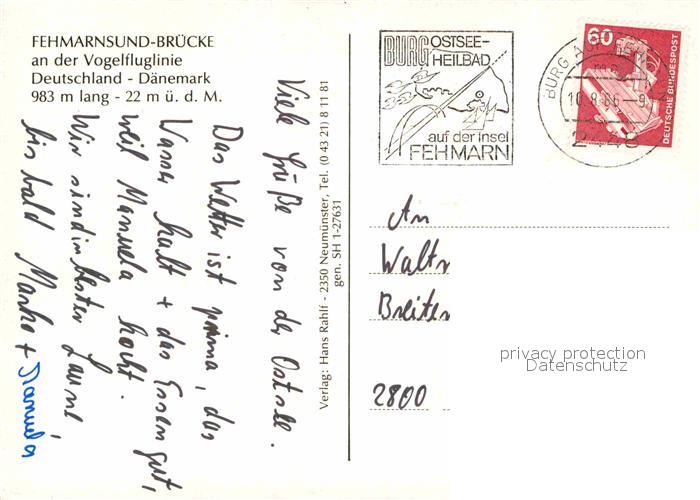 FEHMARNSUND-BRÜCKE
an der Vogelfluglinie
Deutschland - Dänemark
983 m lang - 22 m ü. d. M.
Viele Grüße von der Ostsee.
Das Wetter ist prima, das
Wasser kalt + das Essen gut,
weil Manuela kocht.
Wir sind in bester Laune,
bis bald Marko + Manuela
Verlag: Hans Rahlf - 2350 Neumünster, Tel. (0 43 21) 8 11 81
gen. SH 1-27631
BURG OSTSEE-
HEILBAD
auf der Insel
FEHMARN
BURG AUF
10.8.86-9
2448
60
DEUTSCHE BUNDESPOST
An
Walter
Breiter
2800
privacy protection
Datenschutz